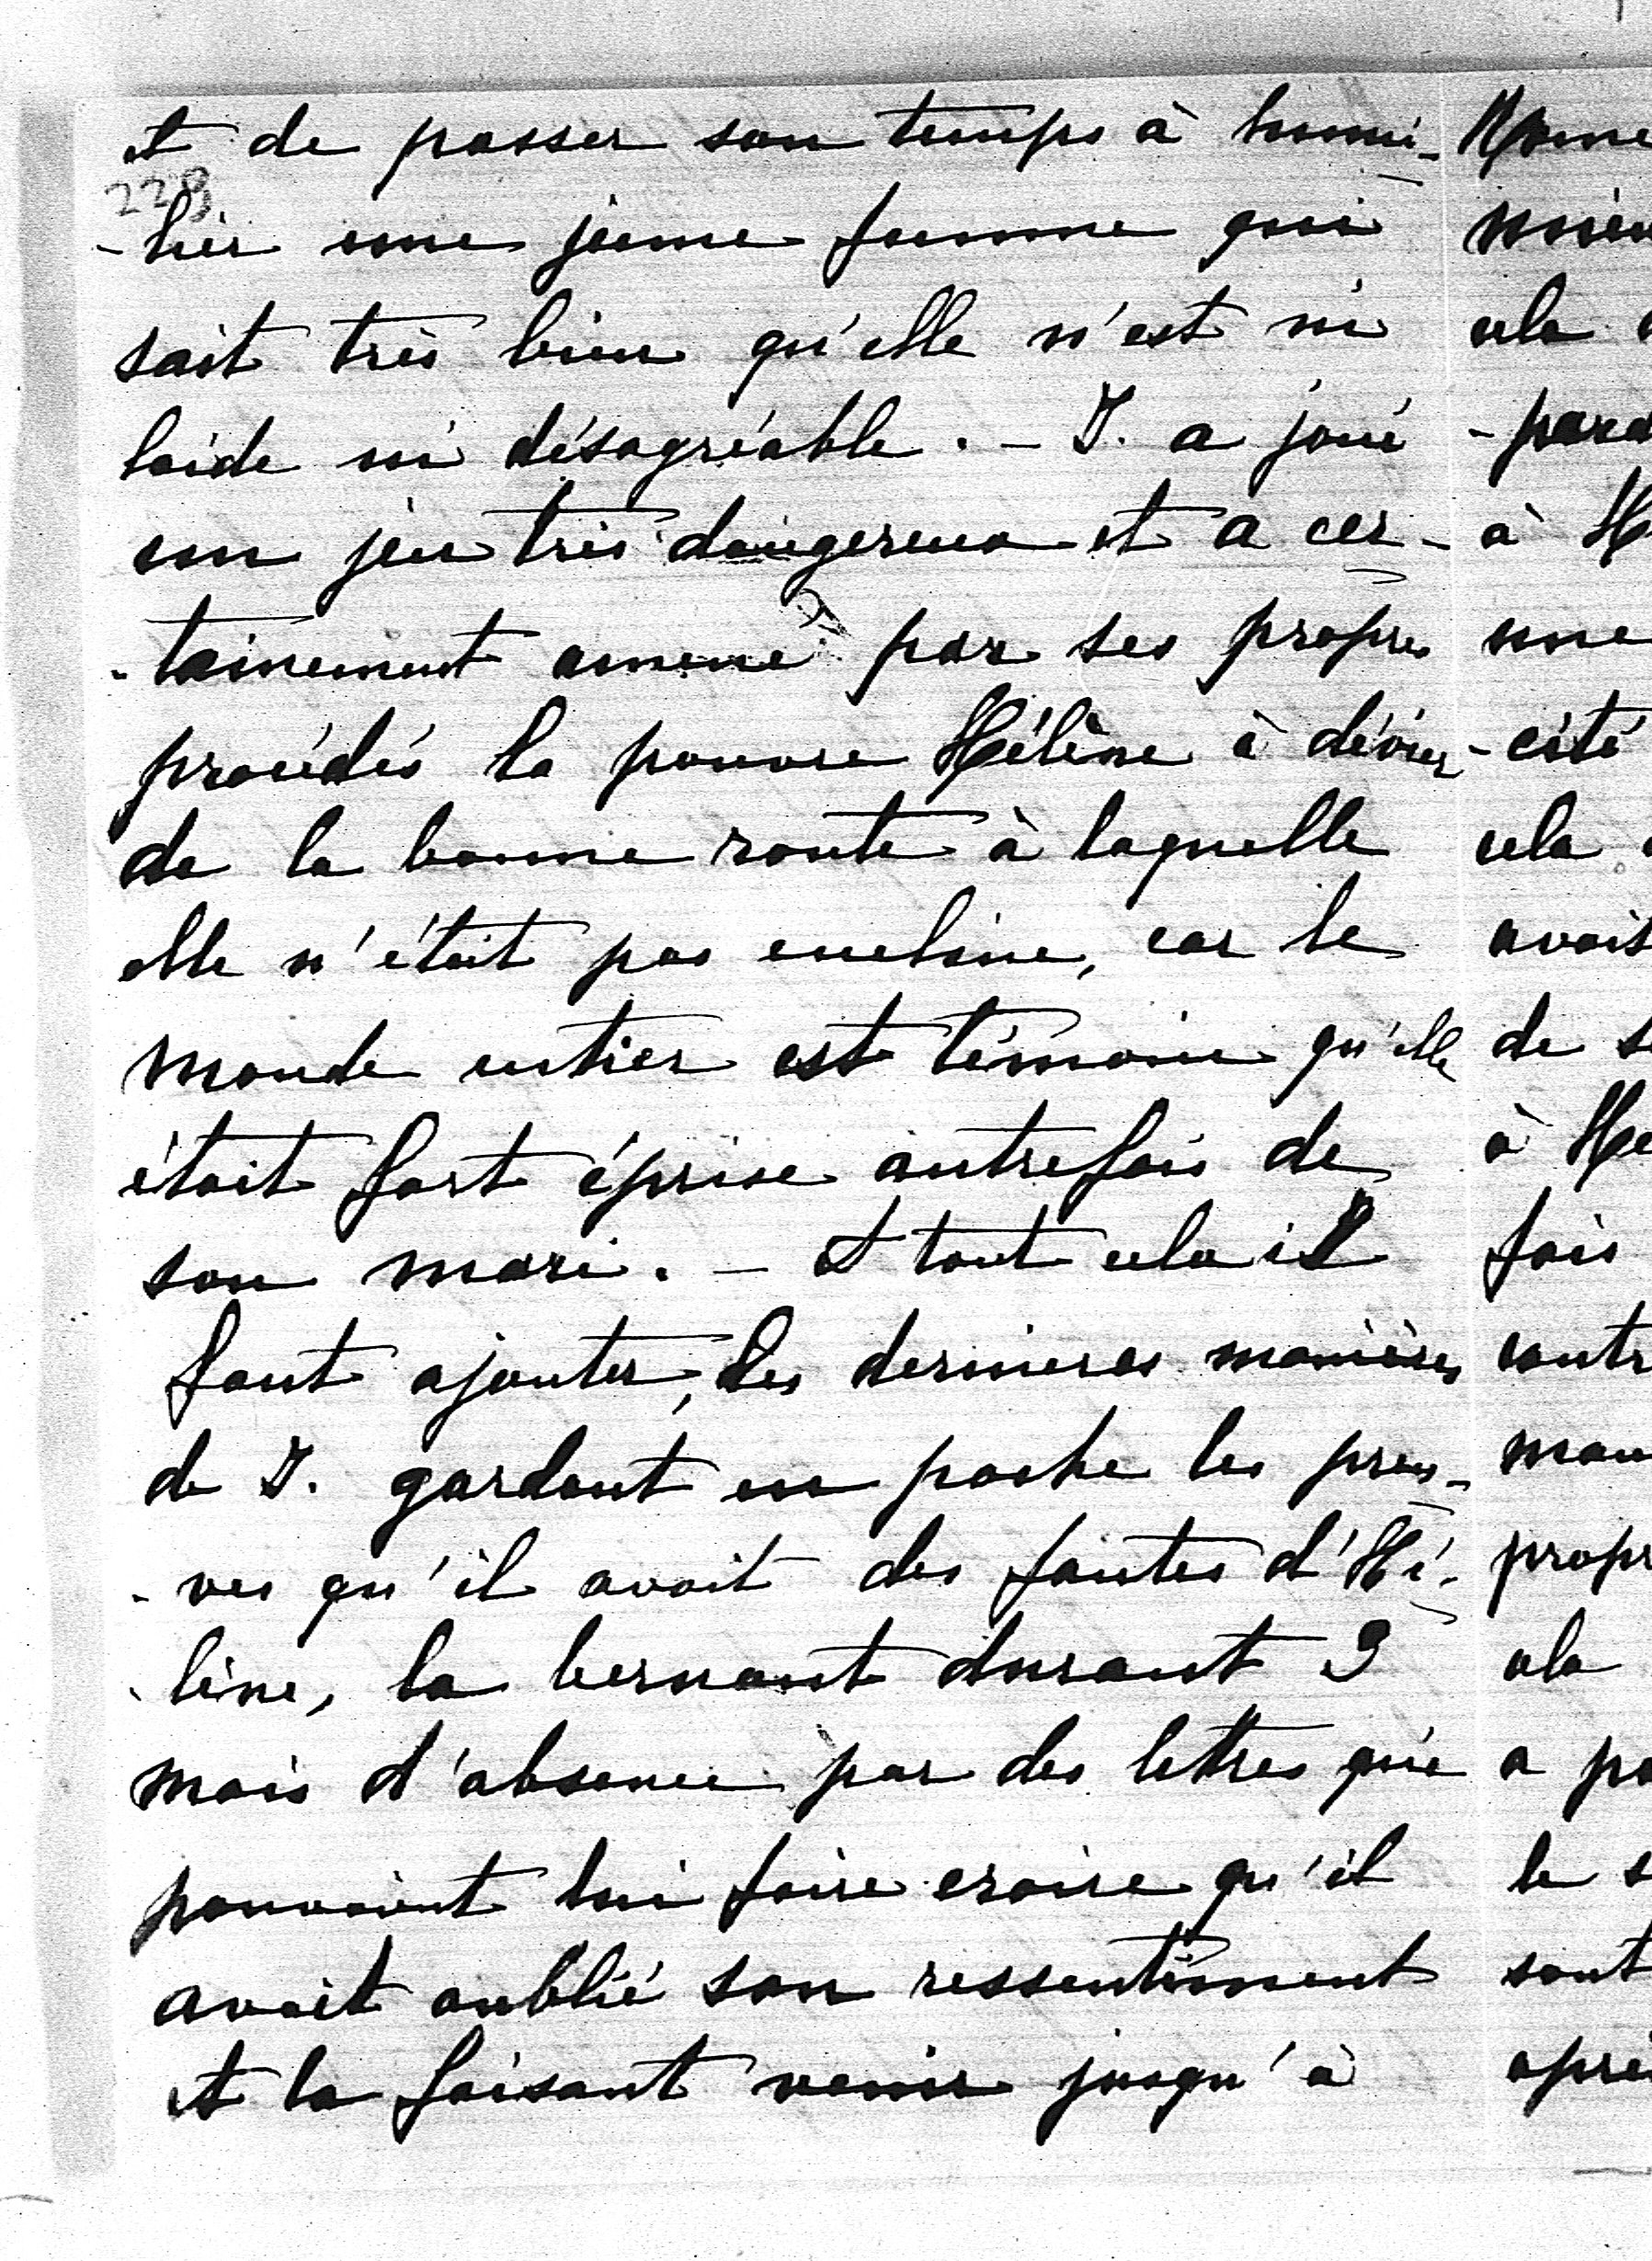 et de passer son temps à humi-
228
-lier une jeune femme qui
sait très bien qu'elle n'est ni
laide ni désagréable. - J. a joué
un jeu très dangereux et a cer-
-tainement amené par ses propres
procédés la pauvre Hélène à dévier
de la bonne route à laquelle
elle n'était pas encline, car le
monde entier est témoin qu'elle
était fort éprise autrefois de
son mari. - A tout cela il
faut ajouter, les dernières manières
de J. gardant en poche les preu-
-ves qu'il avait des fautes d'Hé-
-lène, la bernant durant 3
mois d'absence par des lettres qui
pouvaient lui faire croire qu'il
avait oublié son ressentiment
et la faisant venir jusqu'à
Rome
cela
-para
à H
une
-cité
cela
avait
de s
à Hé
fois
contr
propr
cela
a pa
le s
sont
aprè